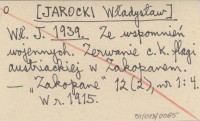 0 [JAROCKI Władysław]
Wł. J. 1939. Ze wspomnień
wojennych. Zerwanie c.k. flagi
austriackiej w Zakopanem.
— „Zakopane" 12 (2), nr 1: 4.
W r. 1915.